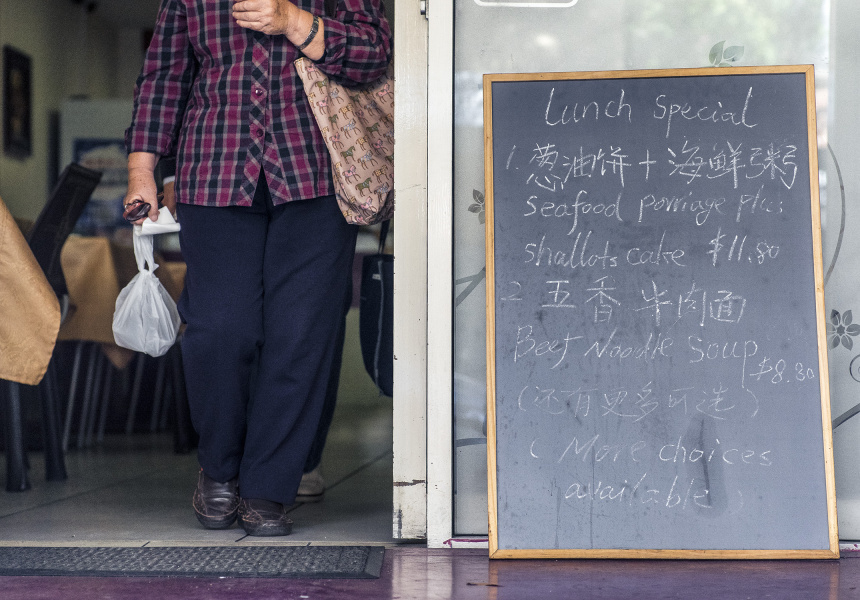 Lunch Special
1. 葱油饼+海鲜粥
Seafood Porriage plus
shallots cake $11.80
2 五香牛肉面
Beef Noodle Soup
$8.80
(还有更多可选)
( More choices
available )